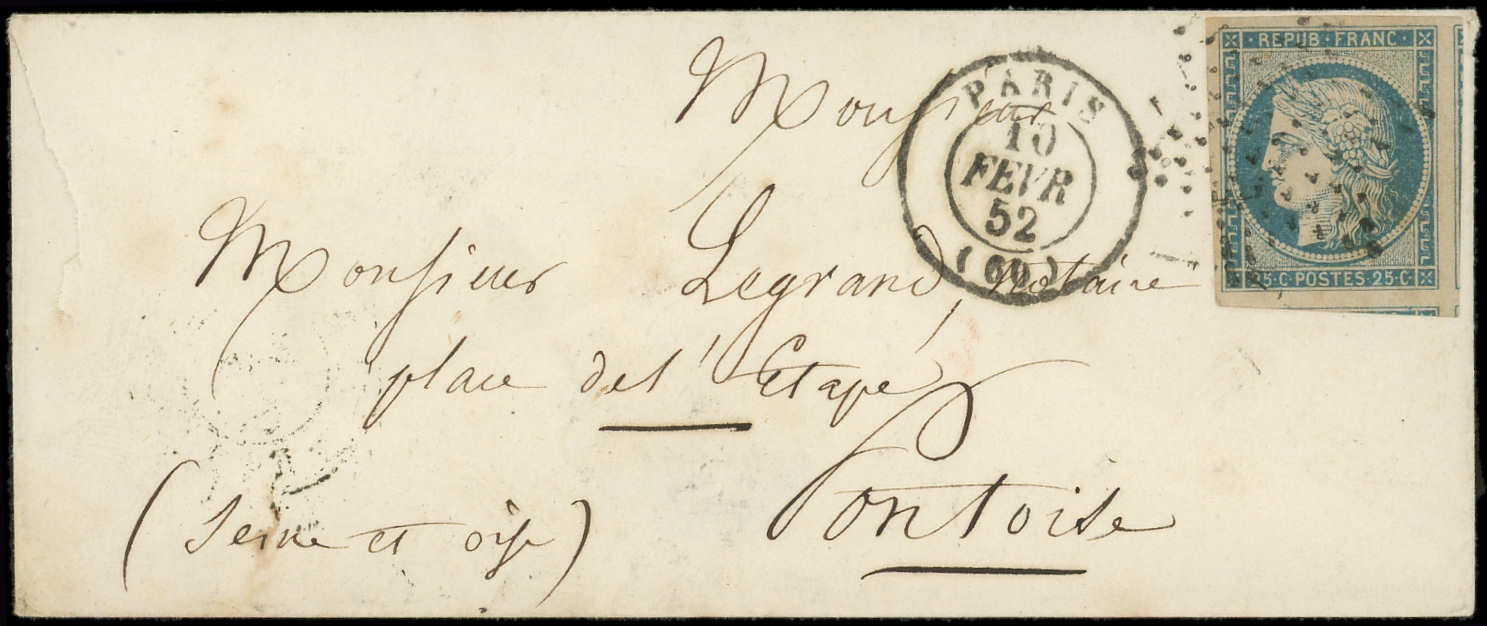 REPUB · FRANC ·
25·C·POSTES·25·C·
PARIS
10
FEVR
52
(60)
Monsieur
Monsieur Legrand, notaire
place de l'Etape
Pontoise
(Seine et oise)